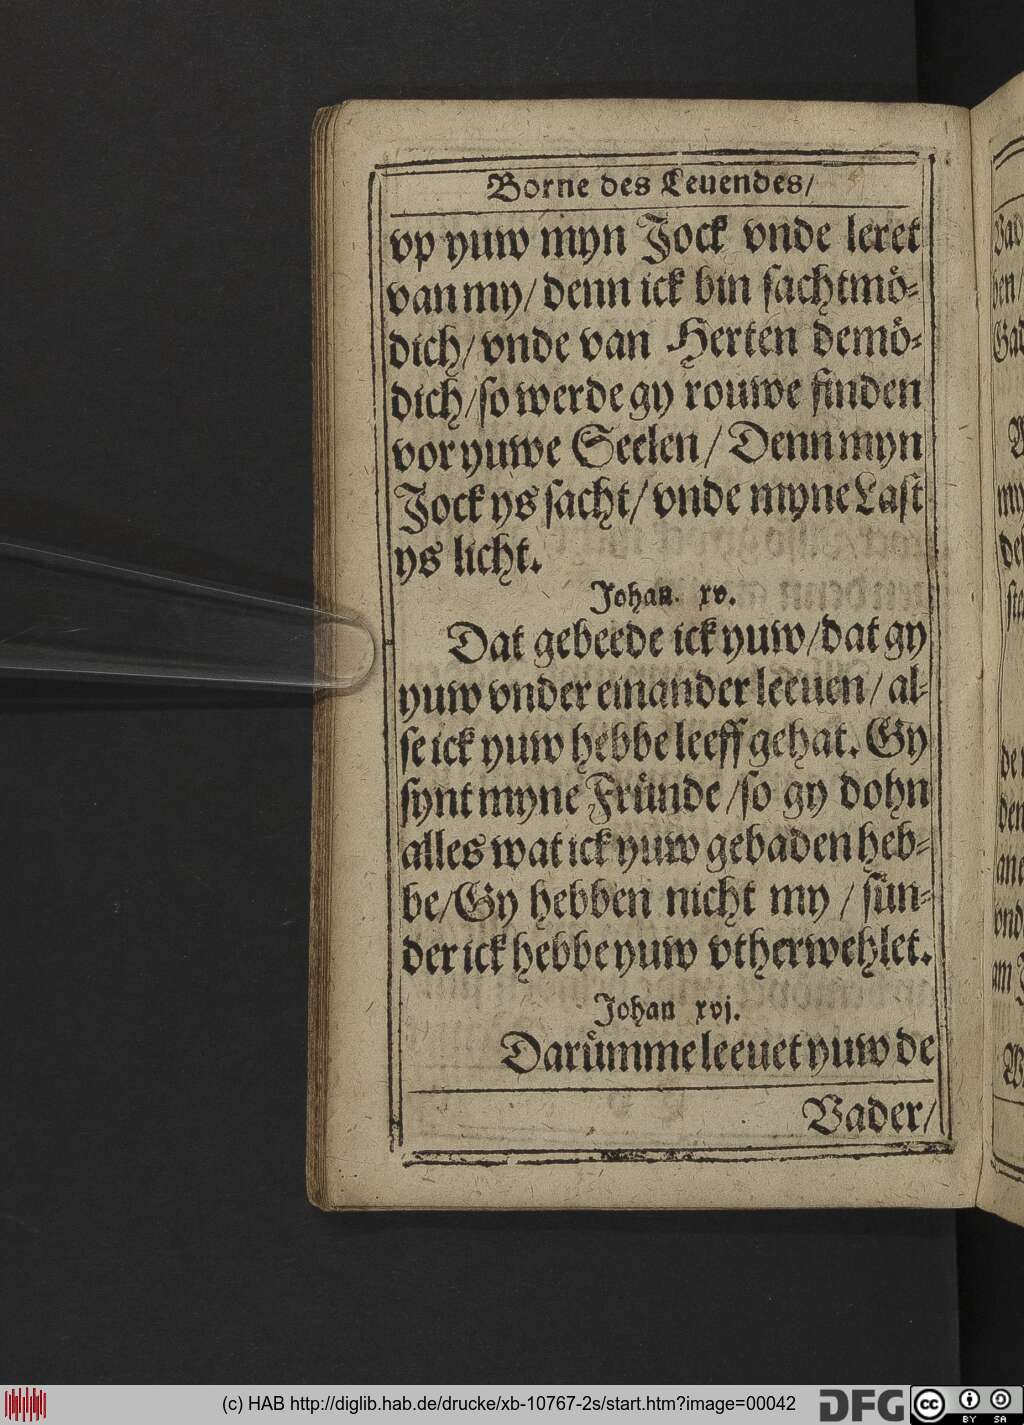 Borne des Leuendes/
vp yuw myn Jock vnde leret
van my/ denn ick bin sachtmoͤ-
dich/ vnde van Herten demoͤ-
dich/ so werde gy rouwe finden
vor yuwe Seelen/ Denn myn
Jock ys sacht/ vnde myne Last
ys licht.
Johan. xv.
Dat gebeede ick yuw/ dat gy
yuw vnder einander leeuen/ al-
se ick yuw hebbe leeff gehat. Gy
synt myne Fruͤnde/ so gy dohn
alles wat ick yuw gebaden heb-
be/ Gy hebben nicht my/ suͤn-
der ick hebbe yuw vtherwehlet.
Johan xvj.
Daruͤmme leeuet yuw de
Vader/
(c) HAB http://diglib.hab.de/drucke/xb-10767-2s/start.htm?image=00042
DFG
cc
BY SA